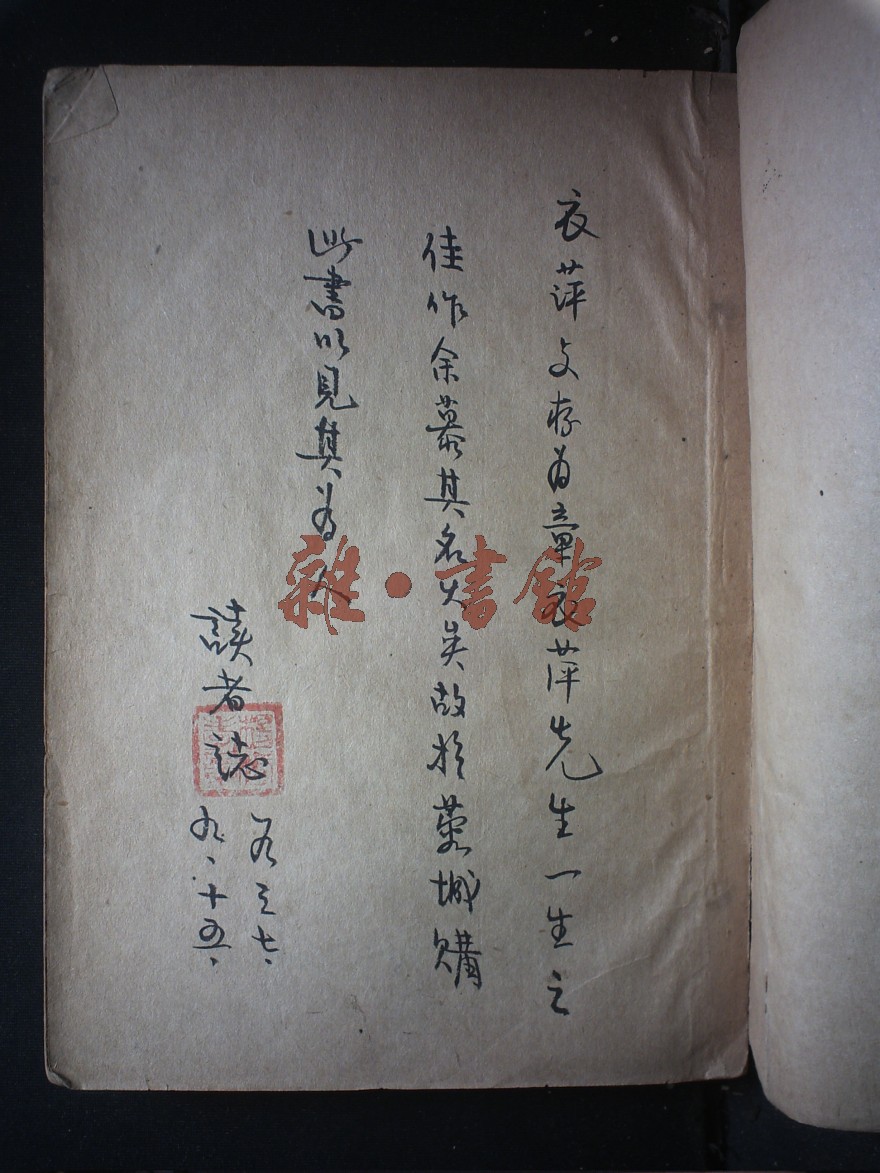 衣萍文存為章衣萍先生一生之
佳作余慕其名久矣故於蓉城購
此書以見其為人
讀者誌
三七、
九、十五、
雜·書館